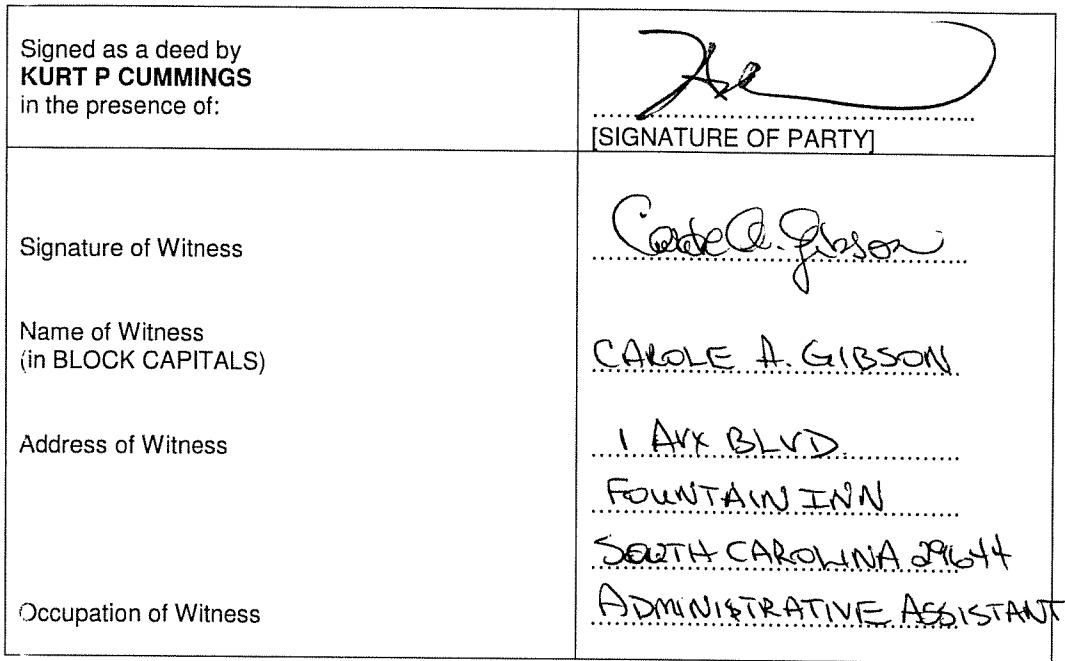 Signed as a deed by
KURT P CUMMINGS
in the presence of:
[SIGNATURE OF PARTY]
Signature of Witness
Carole A. Gibson
Name of Witness
(in BLOCK CAPITALS)
CAROLE A. GIBSON
Address of Witness
1 AVX BLVD.
FOUNTAIN INN
SOUTH CAROLINA 29644
Occupation of Witness
ADMINISTRATIVE ASSISTANT